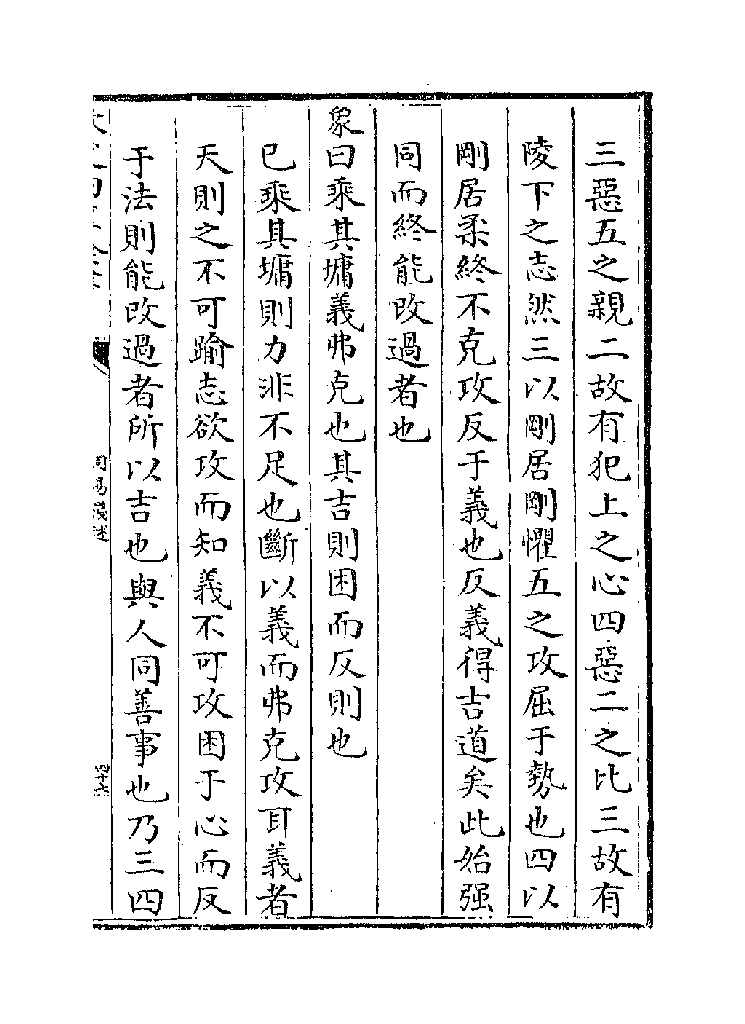 三惡五之親二故有犯上之心四惡二之比三故有
陵下之志然三以剛居剛懼五之攻屈于勢也四以
剛居柔終不克攻反于義也反義得吉道矣此始强
同而終能改過者也
象曰乘其墉義弗克也其吉則困而反則也
已乘其墉則力非不足也斷以義而弗克攻耳義者
天則之不可踰志欲攻而知義不可攻困于心而反
于法則能改過者所以吉也與人同善事也乃三四
周易淺述
四十六